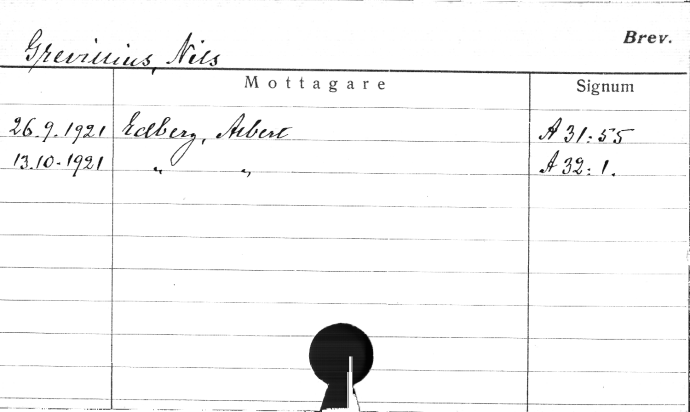 Brev.
Grevillius, Nils
Mottagare Signum
26.9.1921 Edberg, Albert A 31:55
13.10.1921 " " A 32:1.